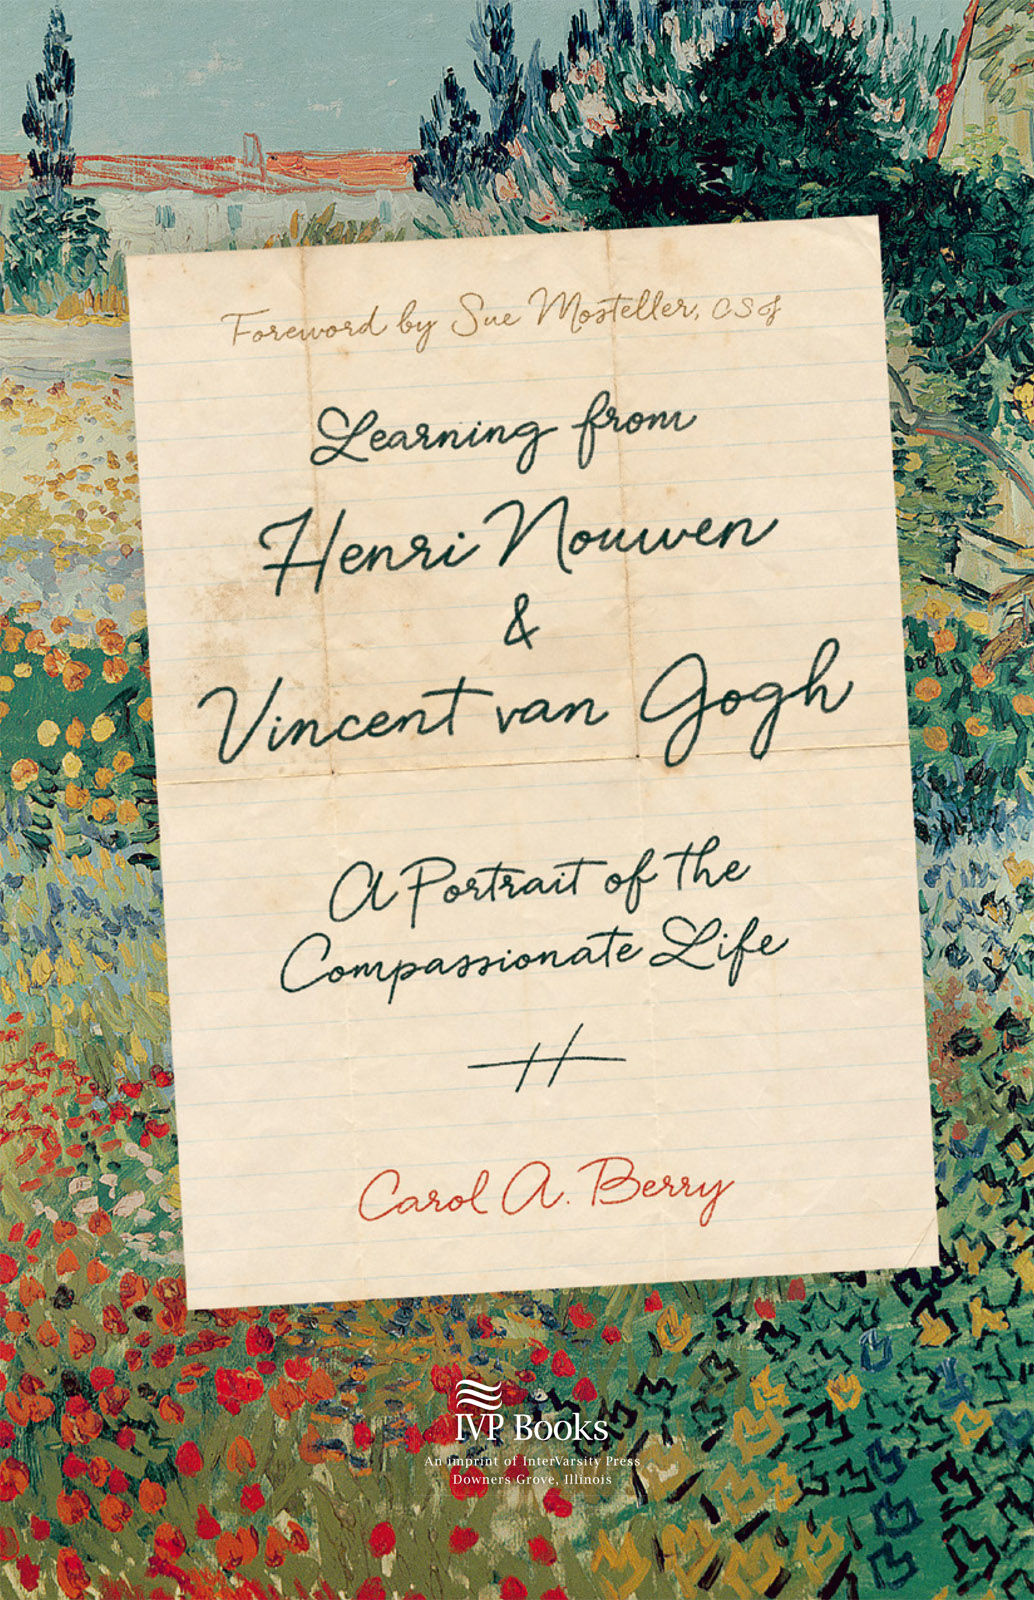 Foreword by Sue Mosteller, CSJ
Learning from
Henri Nouwen
&
Vincent van Gogh
A Portrait of the
Compassionate Life
Carol A. Berry
IVP Books
An imprint of InterVarsity Press
Downers Grove, Illinois